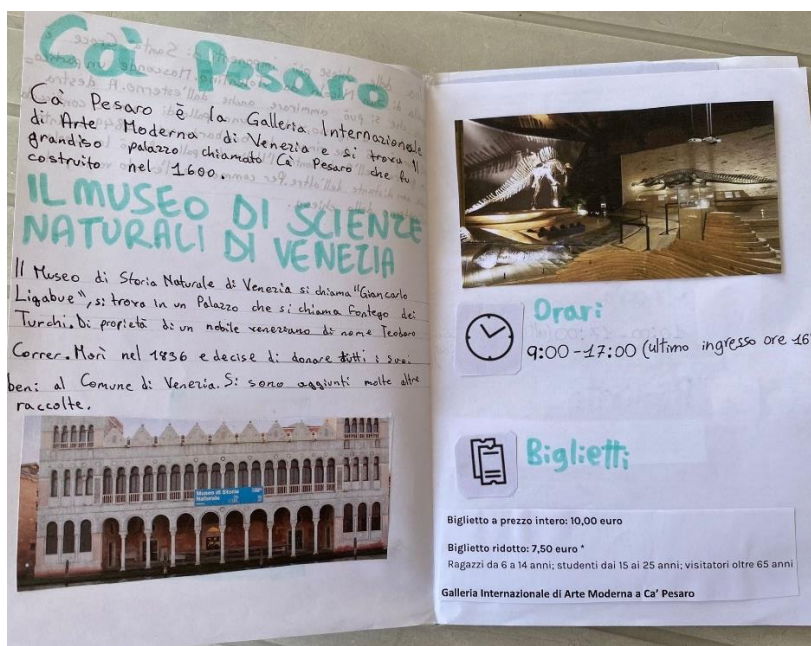 Ca' Pesaro
Ca' Pesaro è la Galleria Internazionale
di Arte Moderna di Venezia e si trova il
grandiso palazzo chiamato Ca' Pesaro che fu
costruito nel 1600.
IL MUSEO DI SCIENZE
NATURALI DI VENEZIA
Il Museo di Storia Naturale di Venezia si chiama "Giancarlo
Ligabue", si trova in un Palazzo che si chiama Fontego dei
Turchi. Di proprietà di un nobile veneziano di nome Teodoro
Correr. Morì nel 1836 e decise di donare tutti i suoi
beni al Comune di Venezia. Si sono aggiunti molte altre
raccolte.
Museo di Storia
Naturale
Orari
9:00-17:00 (ultimo ingresso ore 16
Biglietti
Biglietto a prezzo intero: 10,00 euro
Biglietto ridotto: 7,50 euro *
Ragazzi da 6 a 14 anni; studenti dai 15 ai 25 anni; visitatori oltre 65 anni
Galleria Internazionale di Arte Moderna a Ca' Pesaro